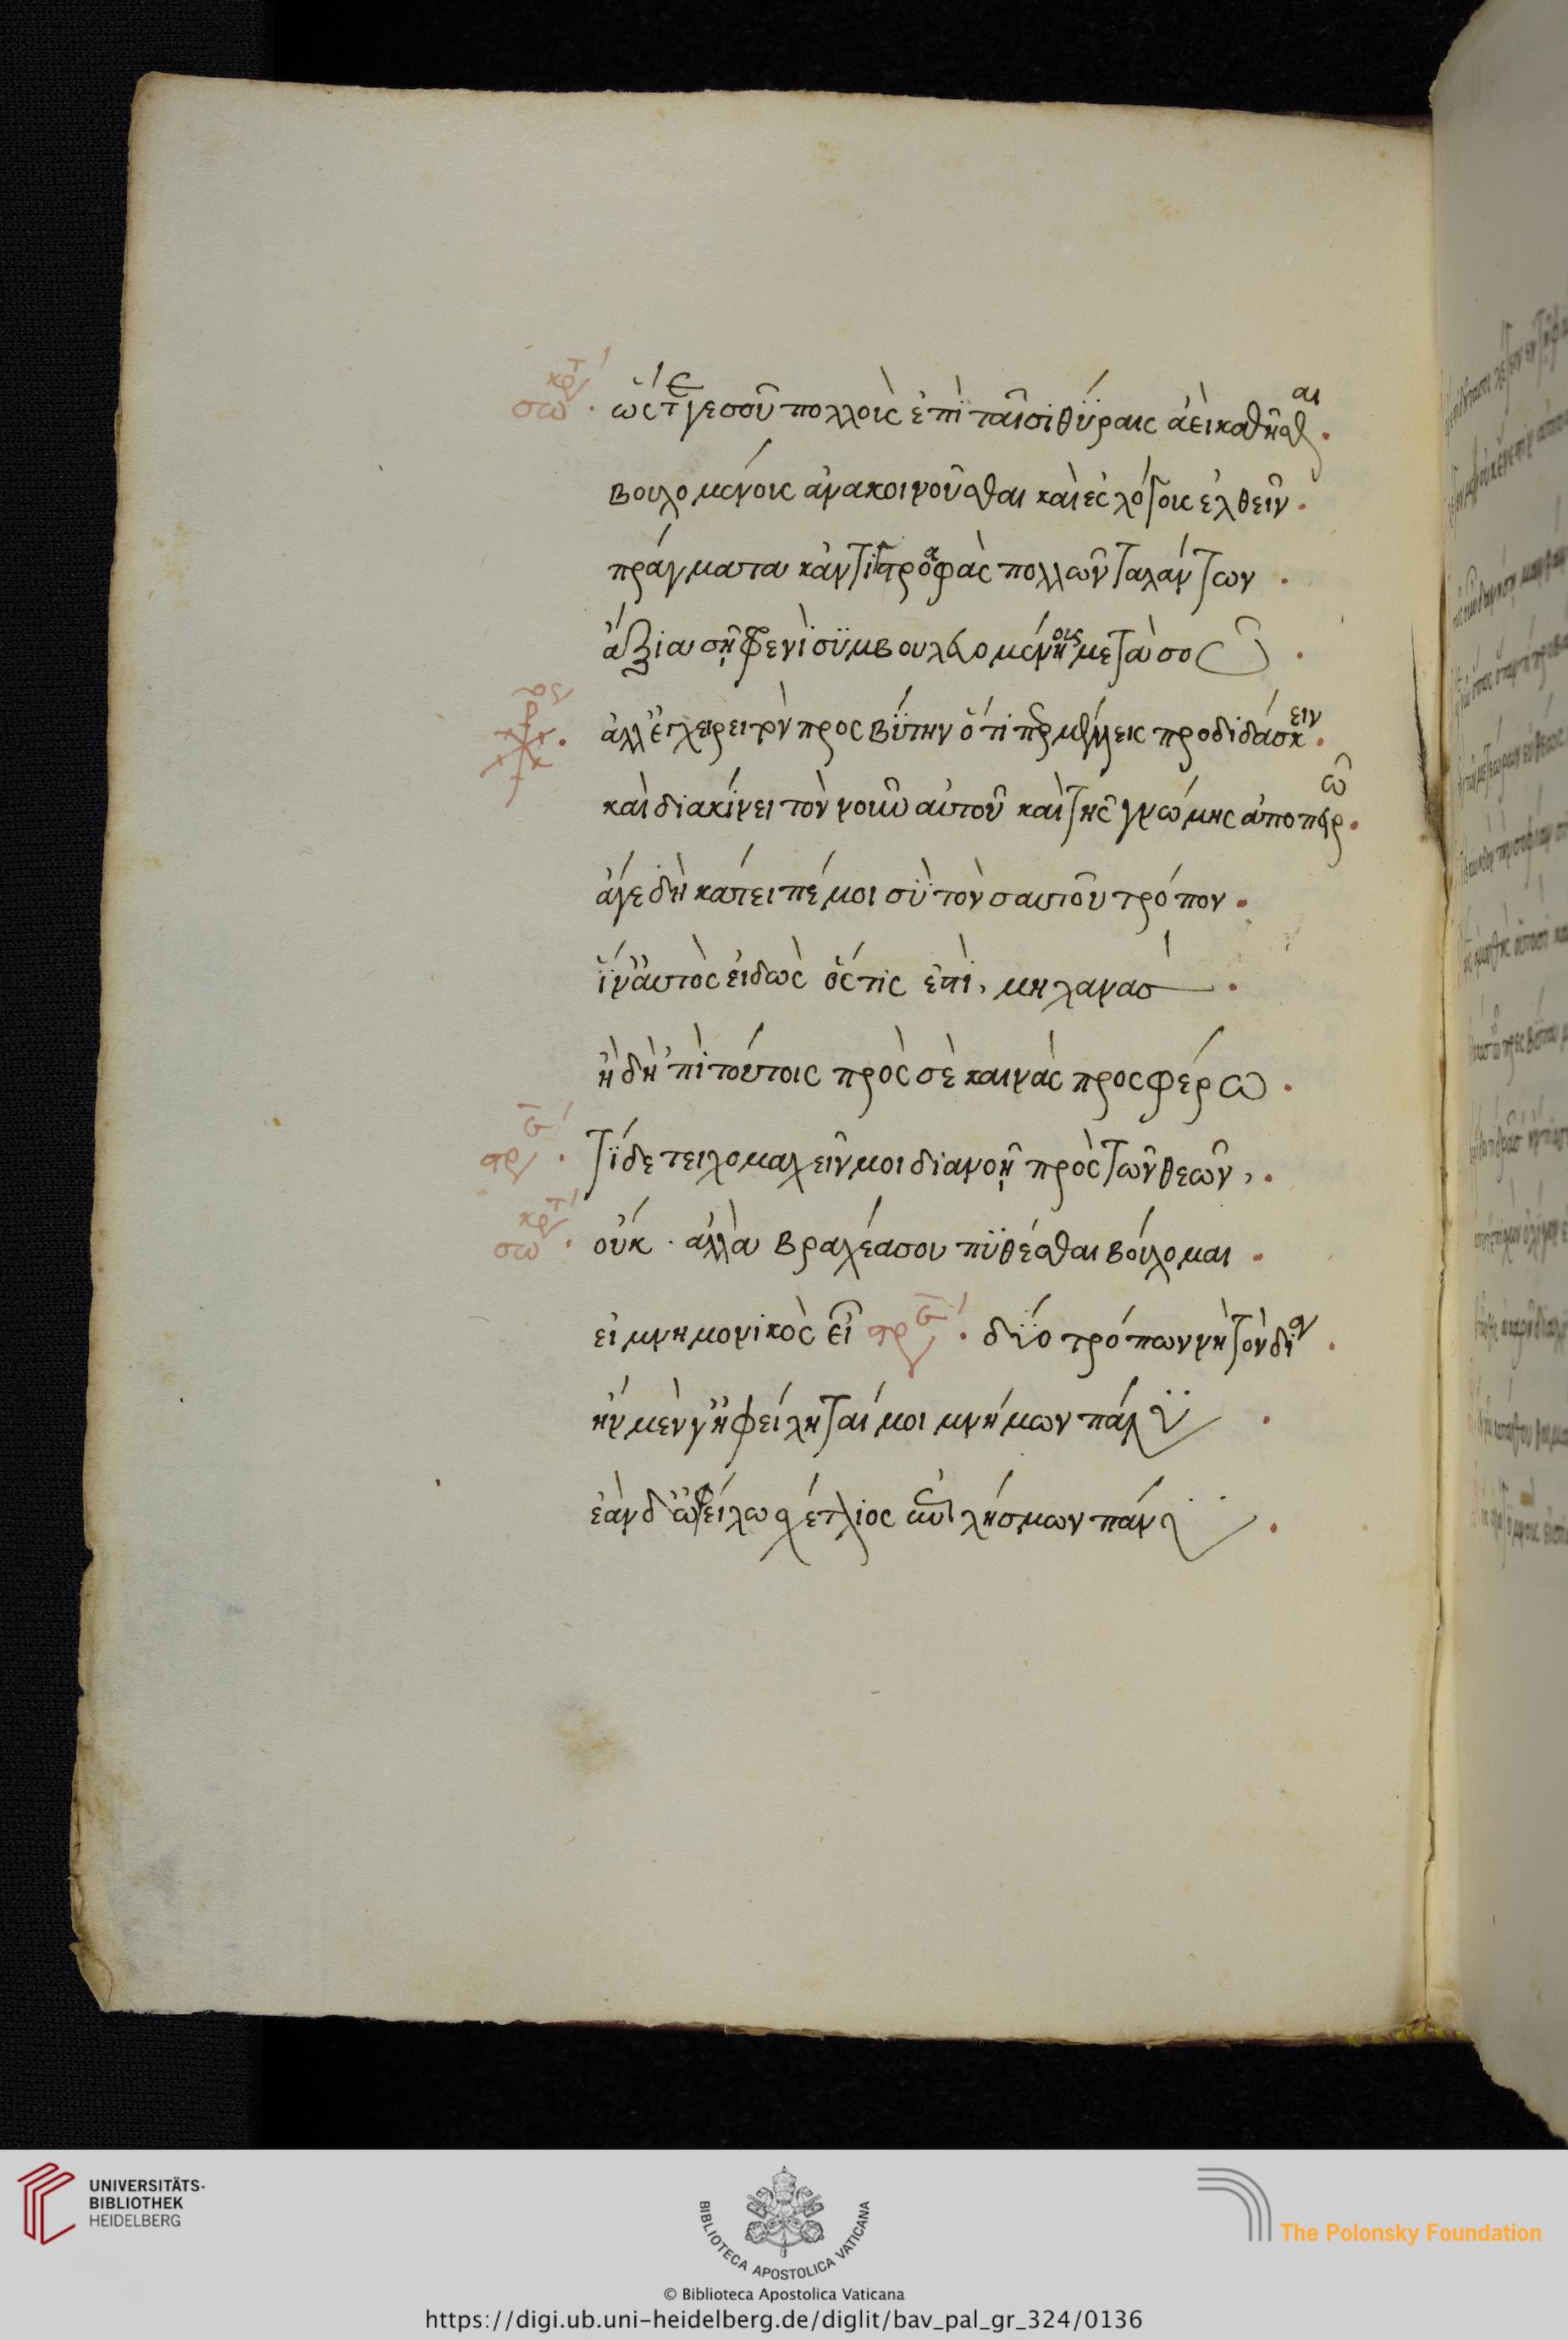 σωκρτ · ὥστε γε σοῦ πολλοὺς ἐπὶ ταῖσι θύραις ἀεὶ καθῆσθαι .
βουλομένους ἀνακοινοῦσθαι καὶ ἐς λόγους ἐλθεῖν .
πράγματα κἀντιγραφὰς πολλῶν ταλάντων .
ἄξια σῇ φρενὶ συμβουλευομένους μετὰ σοῦ .
ἀλλ ἐγχείρει τὸν πρεσβύτην ὅτι περ μέλλεις προδιδάσκειν .
καὶ διακίνει τὸν νοῦν αὐτοῦ καὶ τῆς γνώμης ἀποπειρῶ .
ἄγε δὴ κάτειπέ μοι σὺ τὸν σαυτοῦ τρόπον .
ἵν αὐτὸς εἰδὼς ὅστις ἐστὶ, μηχανὰς .
ἤδη ’πὶ τούτοις πρὸς σὲ καινὰς προσφέρω .
στρ · τί δε τειχομαχεῖν μοι διανοῇ πρὸς τῶν θεῶν, .
σωκρτ · οὐκ · ἀλλὰ βραχέα σου πυθέσθαι βούλομαι .
εἰ μνημονικὸς εἶ στρ · δύο τρόπω νὴ τὸν δία .
ἢν μὲν γ ὀφείληταί μοι μνήμων πάνυ .
ἐὰν δ ὀφείλω σχέτλιος ἐπιλήσμων πάνυ .
UNIVERSITÄTS-
BIBLIOTHEK
HEIDELBERG
BIBLIOTECA APOSTOLICA VATICANA
The Polonsky Foundation
© Biblioteca Apostolica Vaticana
https://digi.ub.uni-heidelberg.de/diglit/bav_pal_gr_324/0136